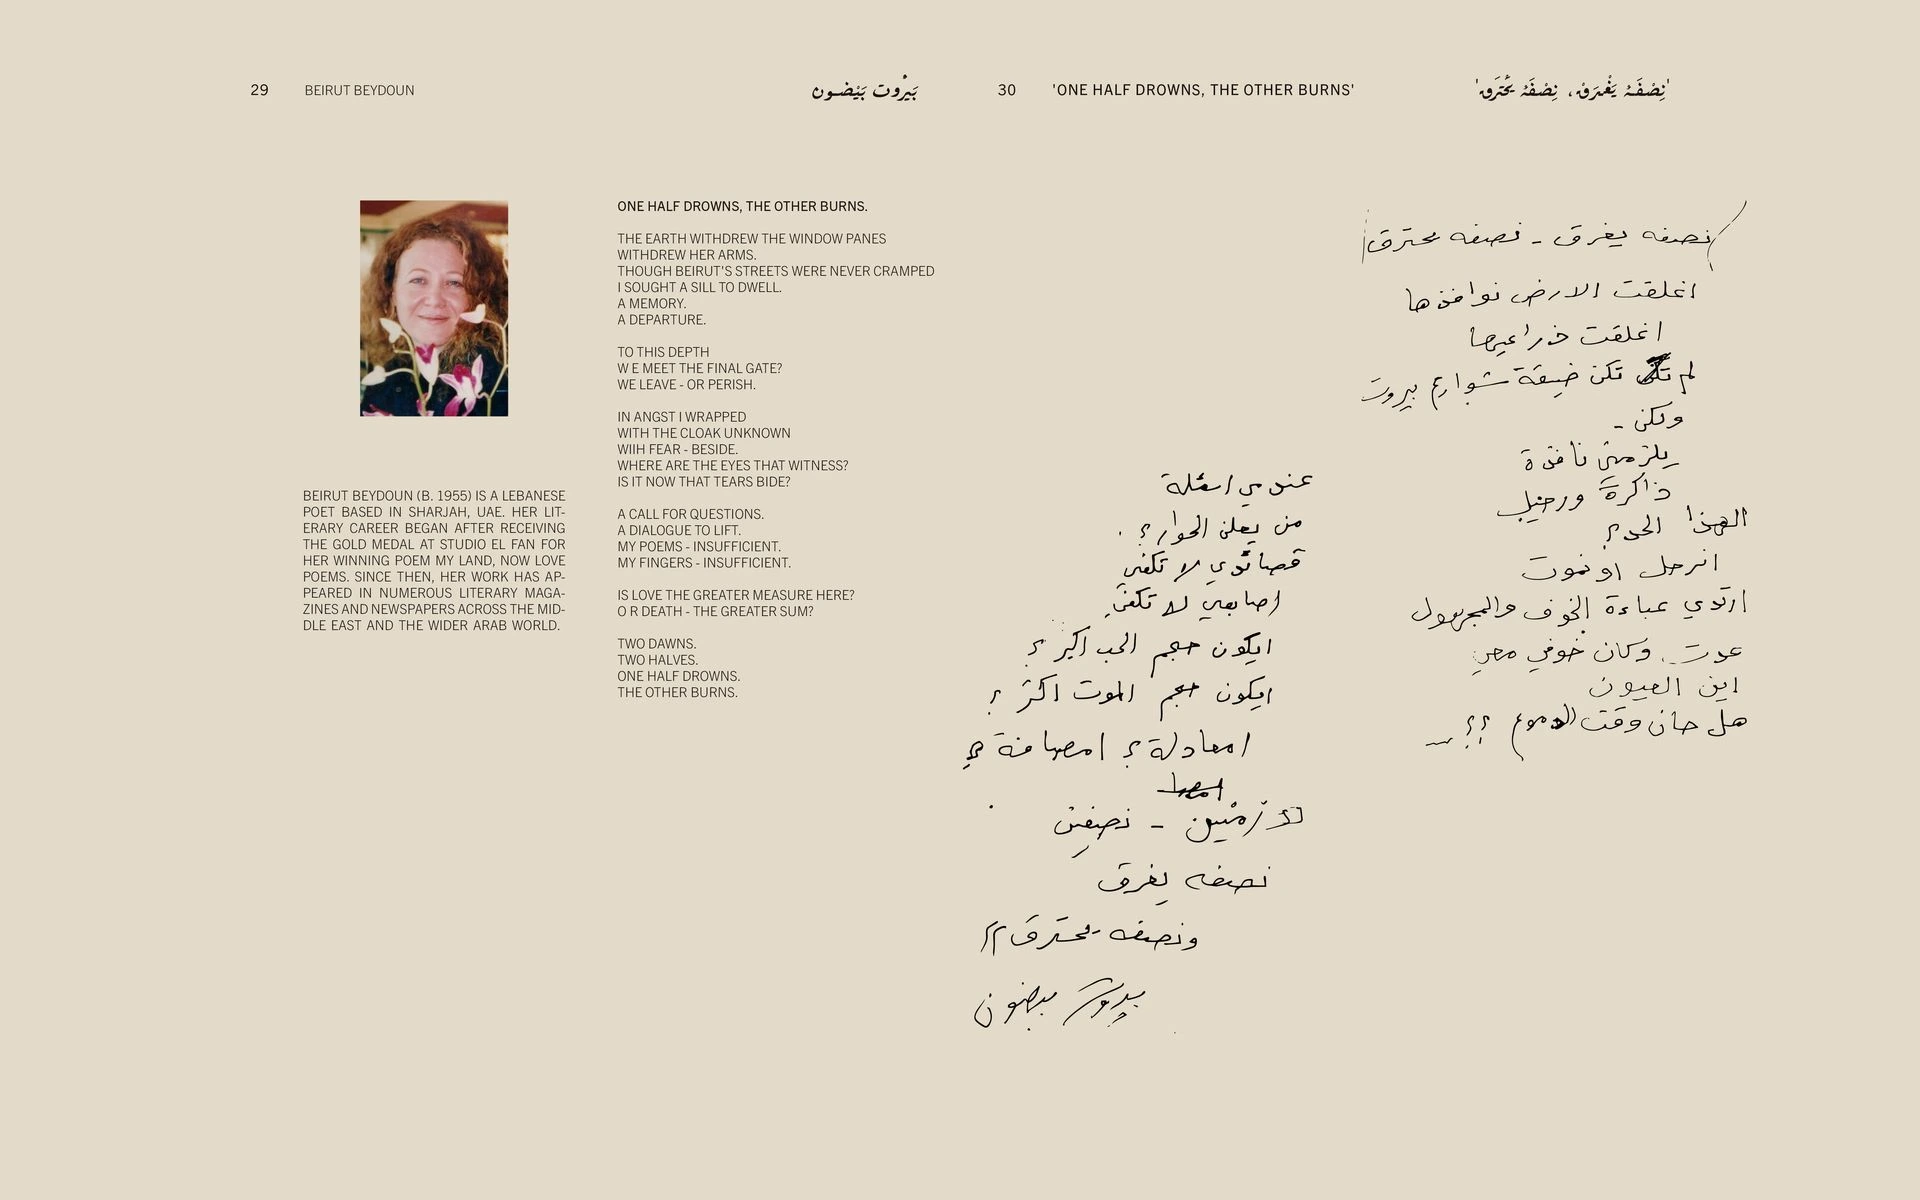 29
BEIRUT BEYDOUN
بَيْرُوت بَيْضُون
30
'ONE HALF DROWNS, THE OTHER BURNS'
'نِصْفَهُ يَغْرَقْ، نِصْفَهُ يَحْتَرِقْ'
BEIRUT BEYDOUN (B. 1955) IS A LEBANESE
POET BASED IN SHARJAH, UAE. HER LIT-
ERARY CAREER BEGAN AFTER RECEIVING
THE GOLD MEDAL AT STUDIO EL FAN FOR
HER WINNING POEM MY LAND, NOW LOVE
POEMS. SINCE THEN, HER WORK HAS AP-
PEARED IN NUMEROUS LITERARY MAGA-
ZINES AND NEWSPAPERS ACROSS THE MID-
DLE EAST AND THE WIDER ARAB WORLD.
ONE HALF DROWNS, THE OTHER BURNS.
THE EARTH WITHDREW THE WINDOW PANES
WITHDREW HER ARMS.
THOUGH BEIRUT'S STREETS WERE NEVER CRAMPED
I SOUGHT A SILL TO DWELL.
A MEMORY.
A DEPARTURE.
TO THIS DEPTH
W E MEET THE FINAL GATE?
WE LEAVE - OR PERISH.
IN ANGST I WRAPPED
WITH THE CLOAK UNKNOWN
WIIH FEAR - BESIDE.
WHERE ARE THE EYES THAT WITNESS?
IS IT NOW THAT TEARS BIDE?
A CALL FOR QUESTIONS.
A DIALOGUE TO LIFT.
MY POEMS - INSUFFICIENT.
MY FINGERS - INSUFFICIENT.
IS LOVE THE GREATER MEASURE HERE?
O R DEATH - THE GREATER SUM?
TWO DAWNS.
TWO HALVES.
ONE HALF DROWNS.
THE OTHER BURNS.
نصفه يغرق - نصفه يحترق
اغلقت الارض نوافذها
اغلقت ذراعيها
لم تكن ضيقة شوارع بيروت
ولكن -
يلزمني نافذة
ذاكرة ورحيل
الهذا الحد؟
انرحل او نموت
ارتدي عباءة الخوف والمجهول
عدت وكان خوفي معي
اين العيون
هل حان وقت الدموع ؟؟
عندي اسئلة
من يعلن الحوار؟
قصائدي لا تكفي
اصابعي لا تكفي
ايكون حجم الحب اكبر؟
ايكون حجم الموت اكثر؟
امعادلة؟ امصادفة؟
- نصفين
نصفه يغرق
ونصفه يحترق
بيروت بيضون